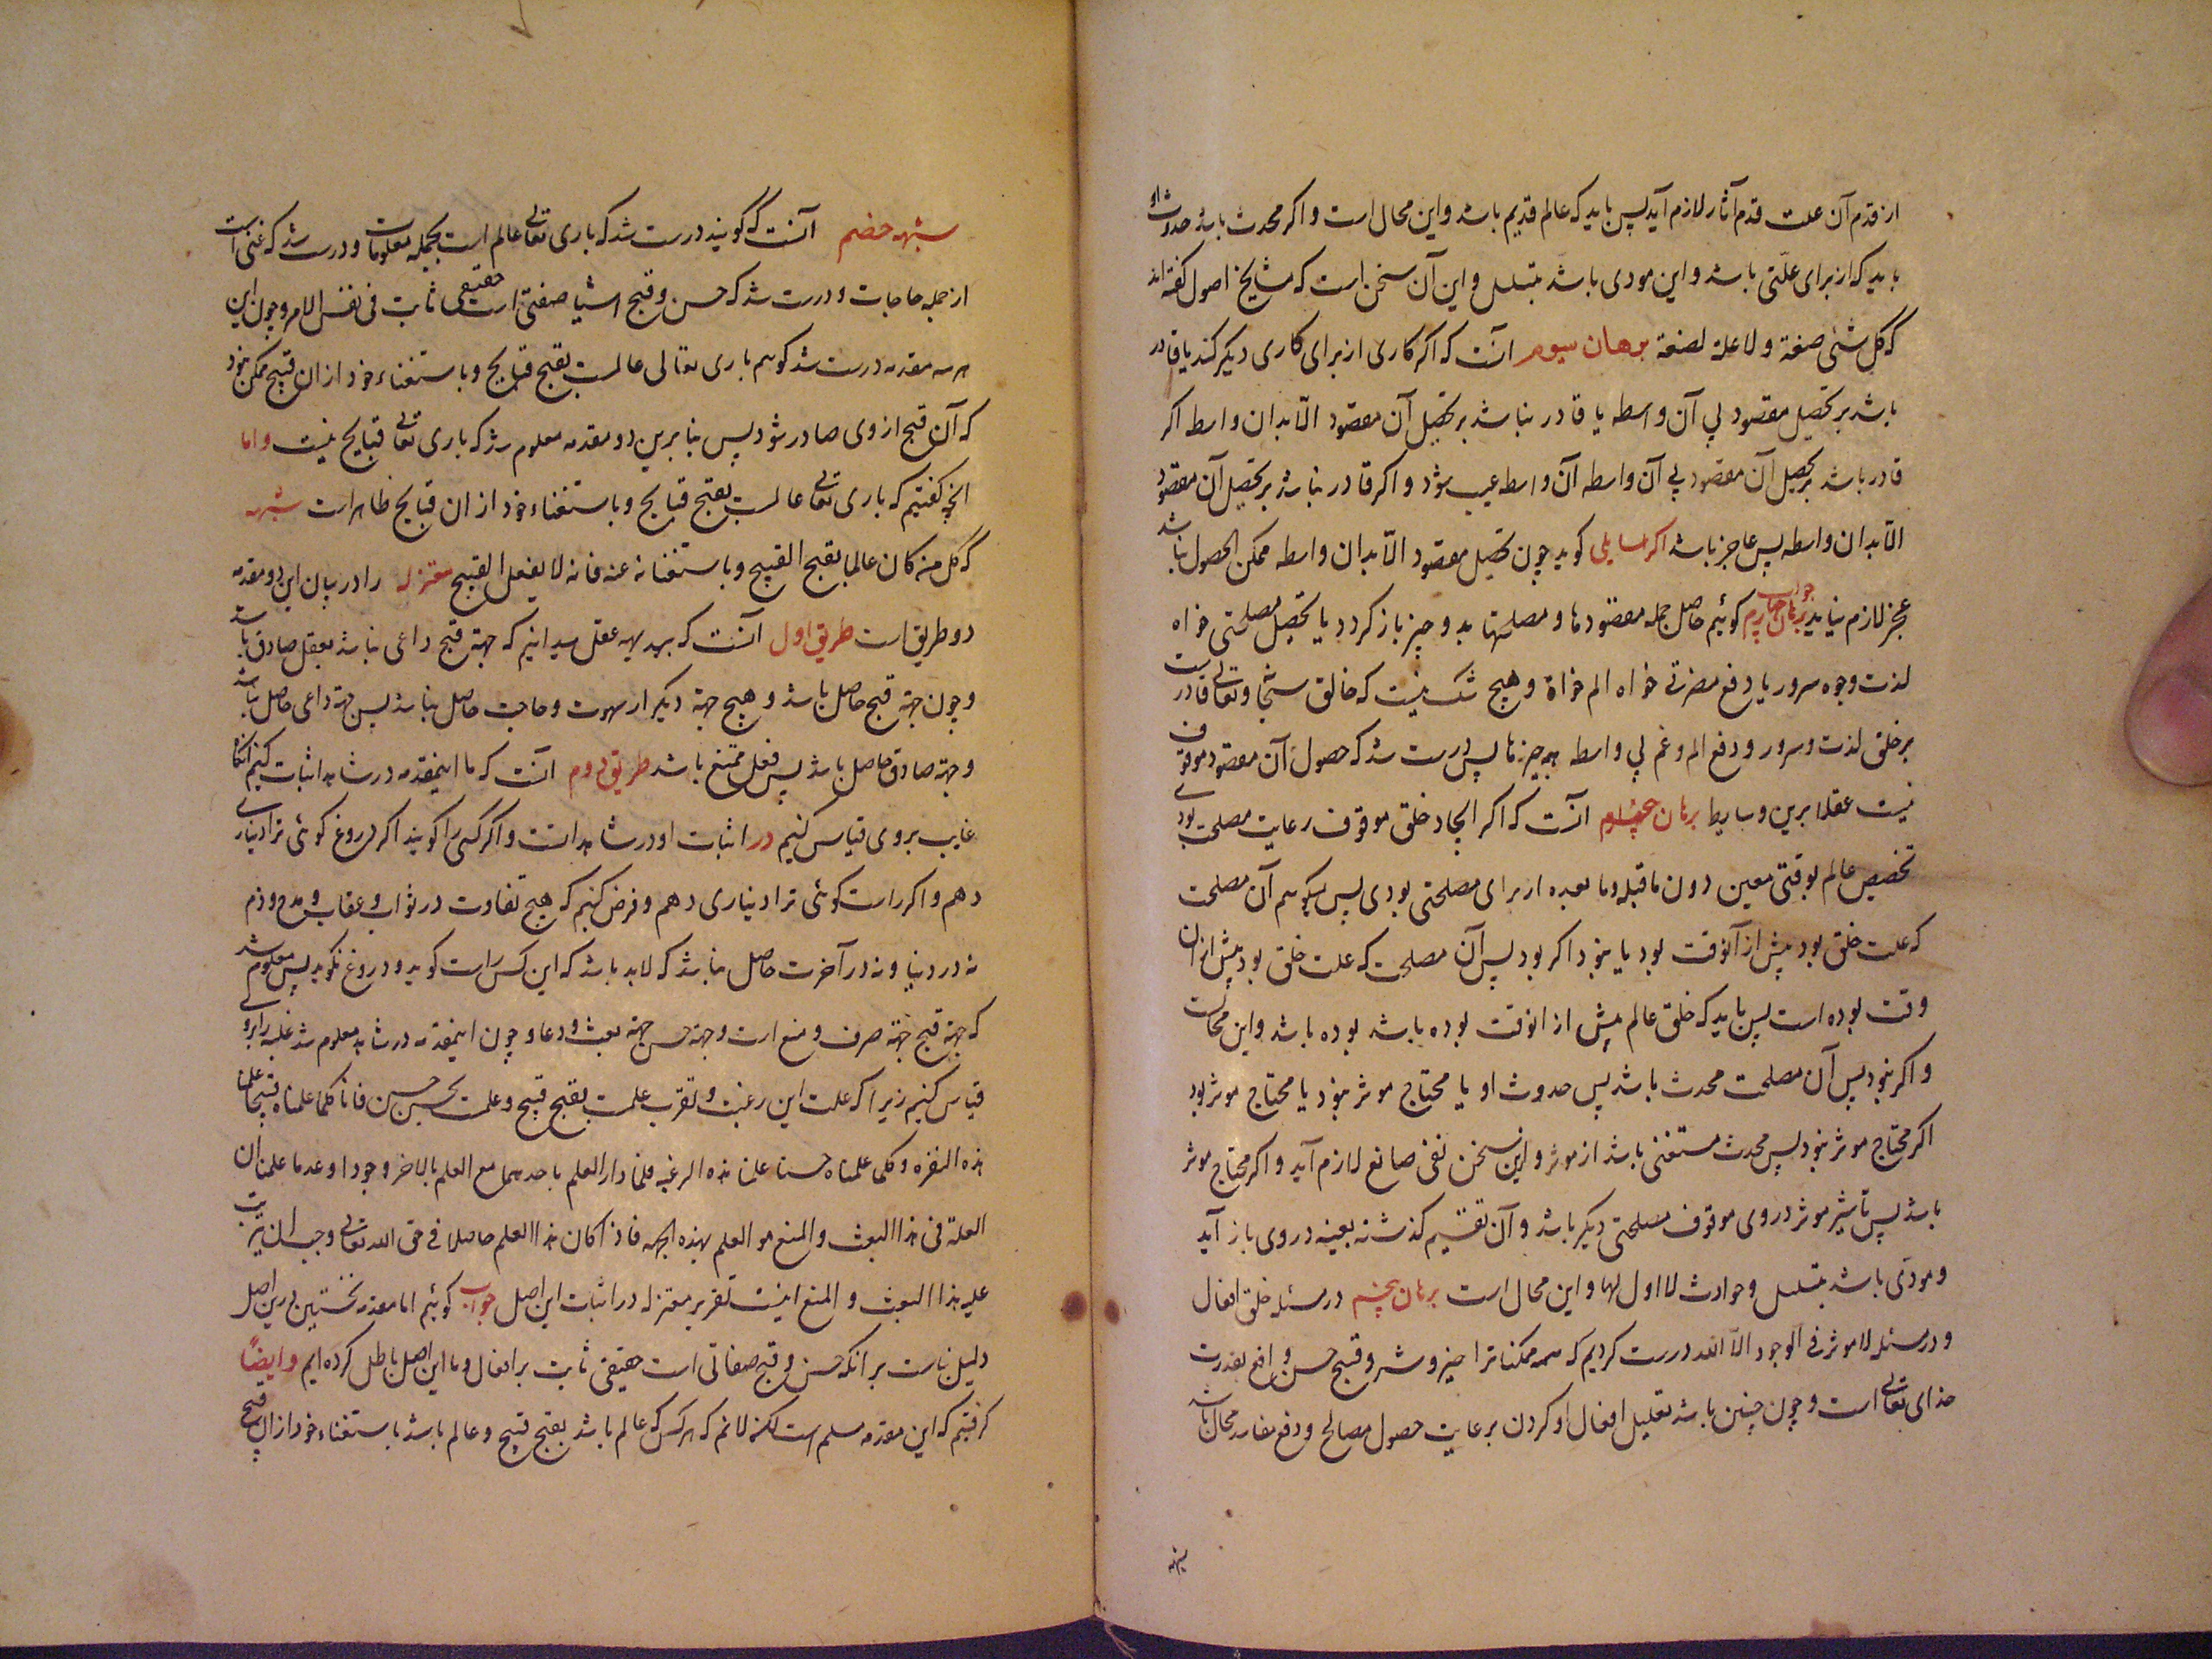 از قدم آن علت قدم آثار لازم آید پس باید که عالم قدیم باشد و این محال است و اکر محدث باشد حدوث او
باید که از برای علّتی باشد و این مودی باشد بتسلسل و این آن سخن است که مشایخ اصول کفته اند
که کل شئی صنعة ولا علة لصنعة برهان سیوم آنست که اکر کاری از برای کاری دیکر کند یا قادر
باشد بر تحصیل مقصود بی آن واسطه یا قادر نباشد بر تحصیل آن مقصود الّا بدان واسطه اکر
قادر باشد بر تحصیل آن مقصود بی آن واسطه آن واسطه عبث شود و اکر قادر نباشد بر تحصیل آن مقصود
الّا بدان واسطه پس عاجز باشد اکر سایلی کوید چون تحصیل مقصود الّا بدان واسطه ممکن الحصول نباشد
عجز لازم نیاید جواب کوئیم حاصل جمله مقصودها و مصلحتها بدو چیز باز کردد یا تحصیل مصلحتی خواه
لذت وجوه سرور یا دفع مضرتی خواه الم خواه و هیچ شک نیست که خالق سبحانه وتعالی قادرست
بر خلق لذت و سرور و دفع الم و غم بی واسطه چیزها پس درست شد که حصول آن مقصود موقوف
نیست عقلا برین وسایط برهان چهارم آنست که اکر ایجاد خلق موقوف رعایت مصلحت بودی
تخصیص عالم بوقتی معین دون ما قبله وما بعده از برای مصلحتی بودی پس کوییم آن مصلحت
که علت خلق بود پیش از آنوقت بود یا نبود اکر بود پس آن مصلحت که علت خلق بود پیش از آن
وقت بوده است پس باید که خلق عالم پیش از انوقت بوده باشد بوده باشد و این محالست
و اکر نبود پس آن مصلحت محدث باشد پس حدوث او یا محتاج موثر نبود یا محتاج موثر بود
اکر محتاج موثر نبود پس محدث مستغنی باشد از موثر و ازین سخن نفی صانع لازم آید و اکر محتاج موثر
باشد پس تاثیر موثر در وی موقوف مصلحتی دیکر باشد و آن تقسیم کذشته بعینه در وی باز آید
و مودّی باشد بتسلسل و حوادث لا اول لها و این محال است برهان پنجم در مسئله خلق افعال
و در مسئله لا موثر فی الوجود الّا الله درست کردیم که همه ممکنات را خیر و شر و قبح و حسن واقع بقدرت
خدای تعالی است و چون چنین باشد تعلیل افعال او کردن برعایت حصول مصالح و دفع مفاسد محال باشد
شبهه
شبهه خصم آنست که کویند درست شد که باری تعالی عالم است بجمله معلومات و درست شد که غنی است
از جمله حاجات و درست شد که حسن و قبح اشیا صفتی است حقیقی ثابت فی نفس الامر و چون این
هر سه مقدمه درست شد کوییم باری تعالی عالمست بقبح قبایح و باستغناء خود از ان قبیح ممکن نبود
که آن قبح از وی صادر شود پس بنا برین دو مقدمه معلوم شد که باری تعالی قبایح نیست و اما
انچه کفتیم که باری تعالی عالمست بقبح قبایح و باستغناء خود از ان قبایح ظاهر است شبهه
که کل من کان عالما بقبح القبیح و باستغنائه عنه فانه لا یفعل القبیح معتزله را در بیان این دو مقدمه
دو طریق است طریق اول آنست که ببدیهه عقل میدانیم که جهة قبح داعی نباشد بفعل صادق باشد
و چون جهة قبح حاصل باشد و هیچ جهة دیکر از شهوت و حاجت حاصل نباشد پس جهة داعی حاصل نباشد
و جهة صادق حاصل باشد پس فعل ممتنع باشد طریق دوم آنست که ما اینمقدمه در شاهد اثبات کنیم آنکاه
غایب بروی قیاس کنیم در اثبات او در شاهد آنست و اکر کسی را کویند اکر دروغ کوئی ترا دیناری
دهم و اکر راست کوئی ترا دیناری دهم و فرض کنیم که هیچ تفاوت در ثواب و عقاب و مدح و ذم
نه در دنیا و نه در آخرت حاصل نباشد که لابد باشد که این کس راست کوید و دروغ نکوید پس معلوم شد
که جهة قبح جهة صرف و منع است و جهة حسن جهة بعث و دعا و چون اینمقدمه در شاهد معلوم شد غایب را برو
قیاس کنیم زیرا که علت این رغبت و نفرت علمست بقبح قبیح و علمست بحسن حسن فانا کلما علمناه قبیحا علمنا
هذه النفره و کلما علمناه حسنا علمنا هذه الرغبه فلما دار العلم باحدهما مع العلم بالاخر وجودا و عدما علمنا ان
العلة فی هذا البعث والمنع هو العلم بهذه الجهه فاذا کان هذا العلم حاصلا فی حق الله تعالی وجب ان یترتب
علیه هذا البعث و المنع اینست تقریر معتزله در اثبات این اصل جواب کوئیم اما مقدمه نخستین درین اصل
دلیل نیست بر انکه حسن و قبح صفاتی است حقیقی ثابت بر افعال و ما این اصل باطل کرده ایم و ایضاً
کرفتیم که این مقدمه مسلم است لکن لا نم که هر کس که عالم باشد بقبح قبیح و عالم باشد باستغناء خود از ان قبیح